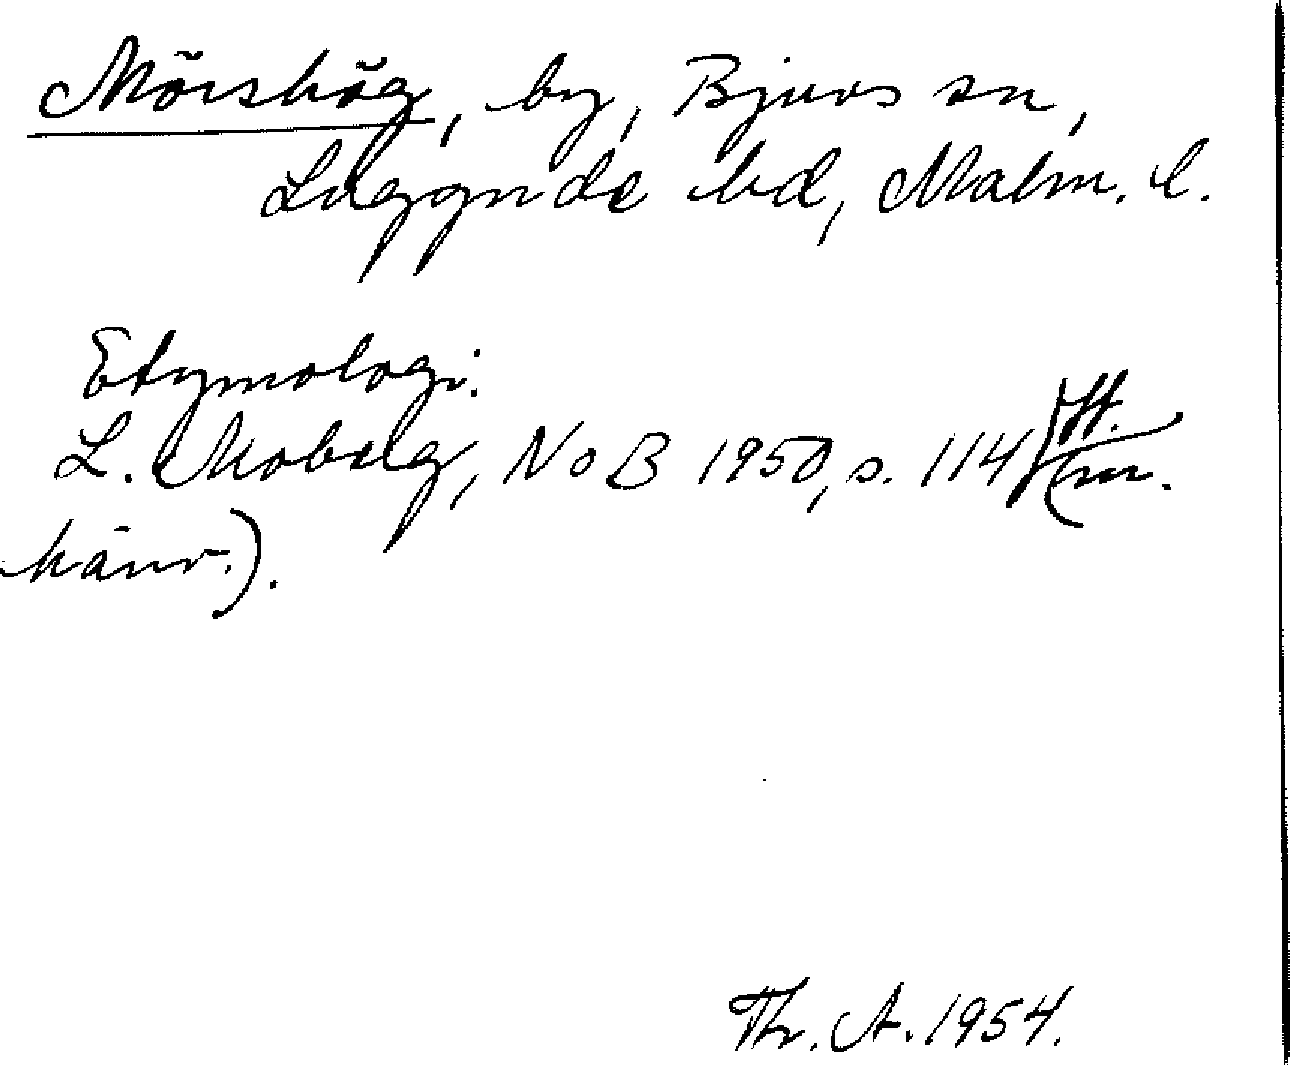 Mörshög, by, Bjuvs sn,
Luggude hd, Malm. l.
Etymologi.
L. Moberg, NoB 1950, s. 114 ff.
(m.
hänv.).
Th. A. 1954.